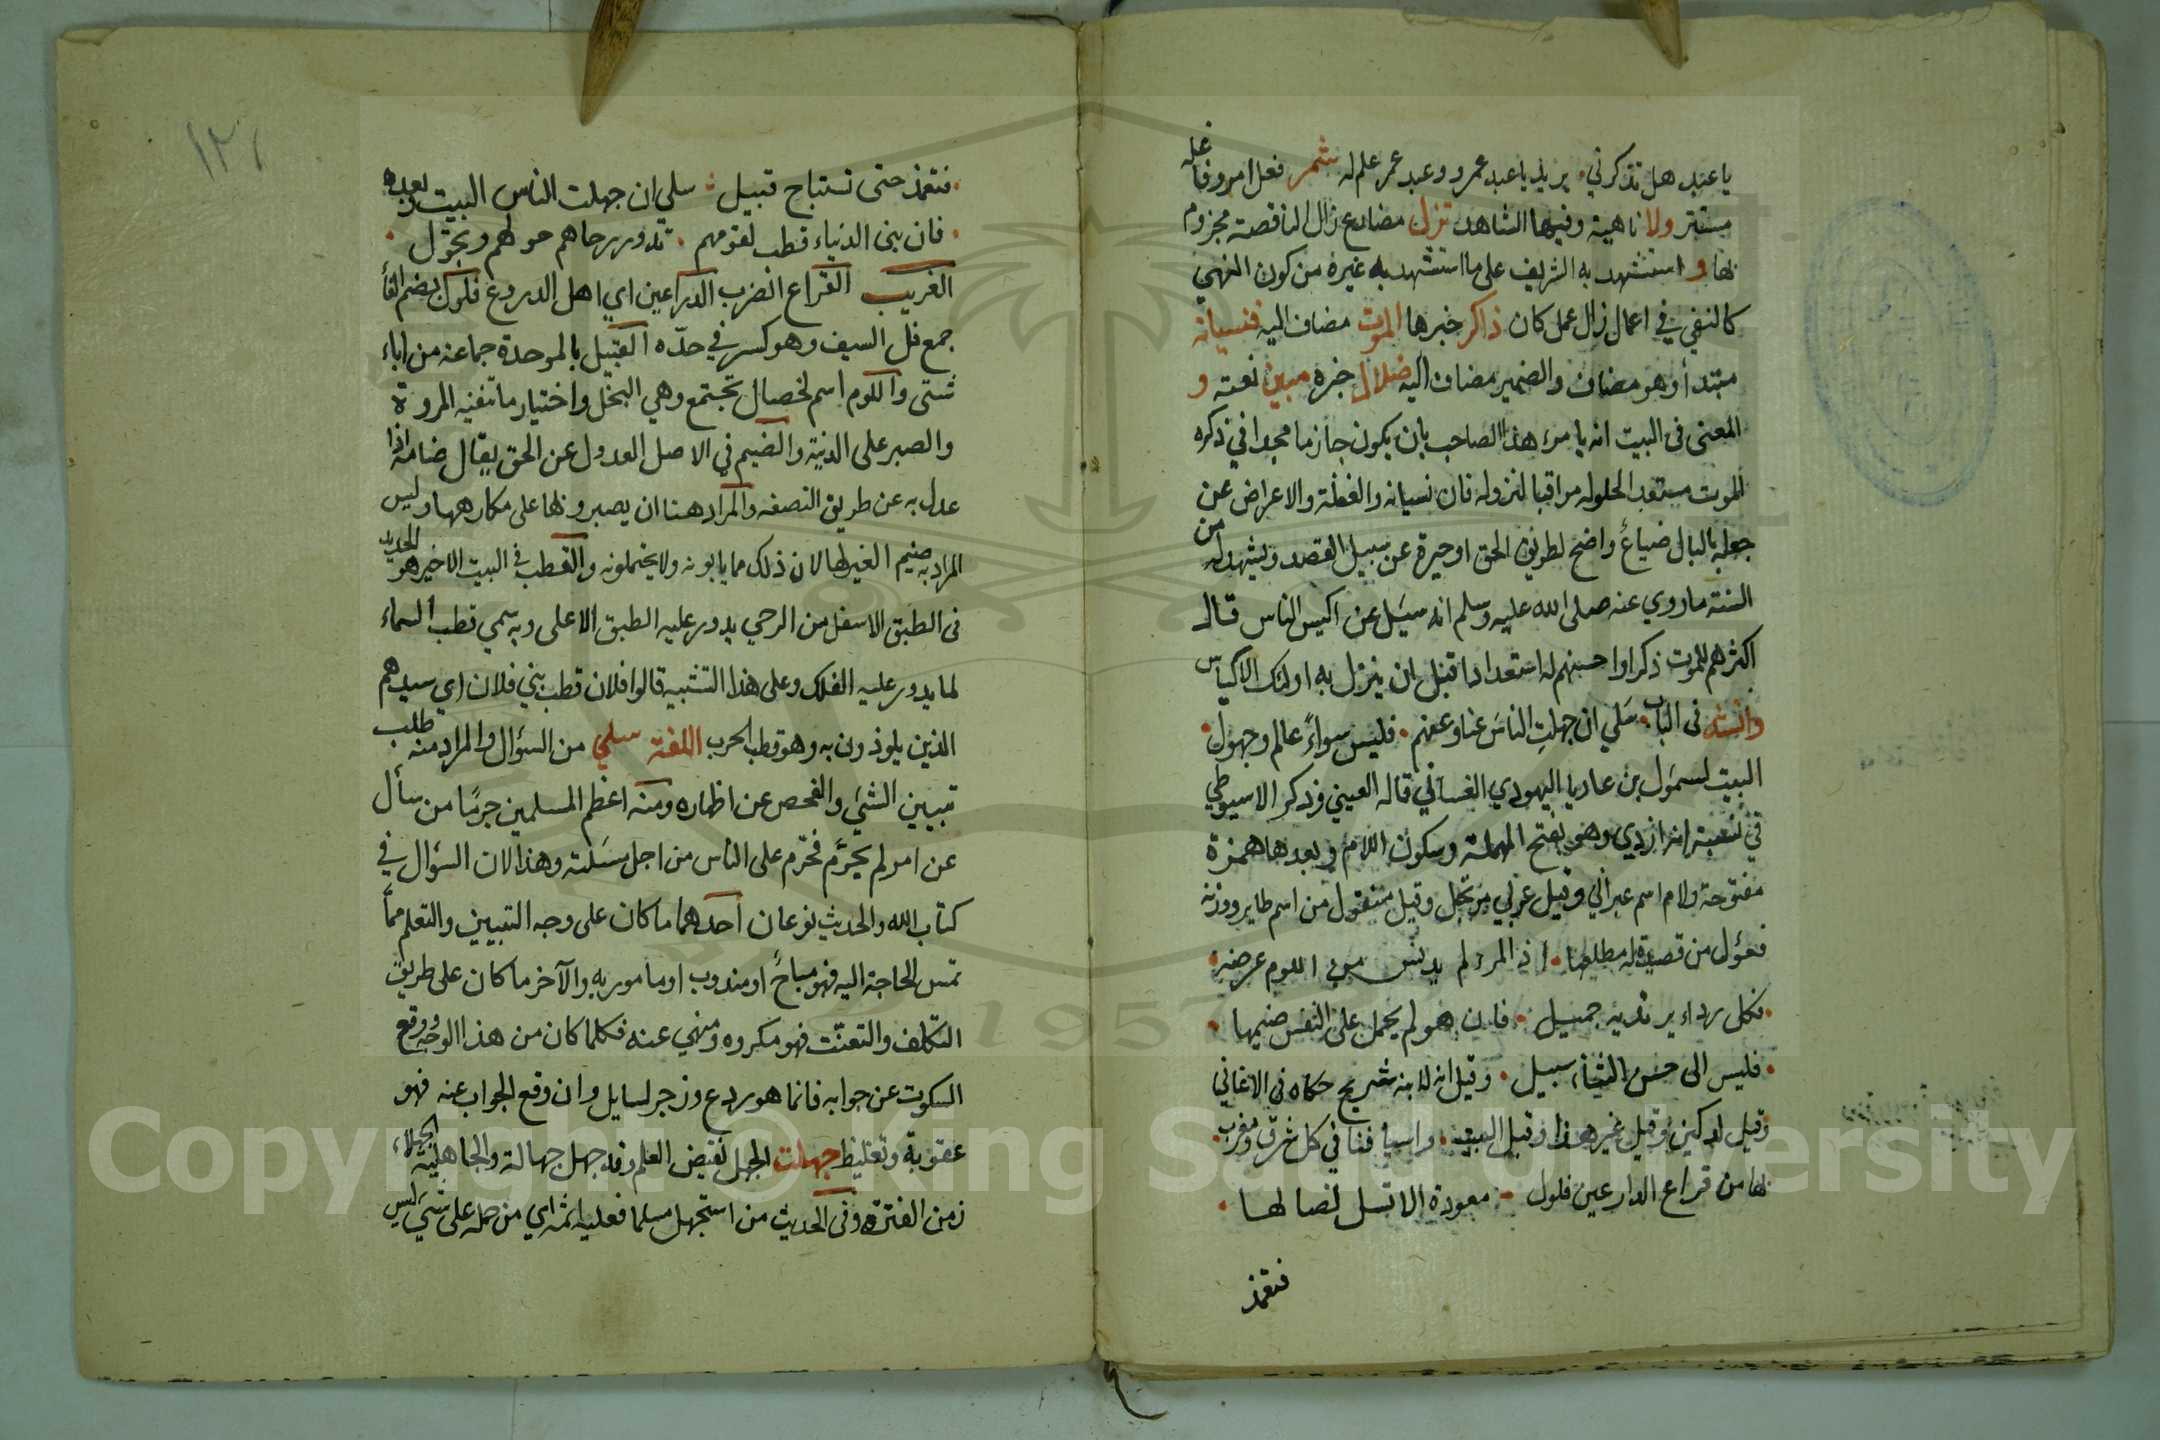 يا عبد هل تذكرني يريد يا عبد عمرو وعبد عمر علم له شمر فعل امر وفاعله
مستتر ولا ناهية وفيها الشاهد تزل مضارع زال الناقصة مجزوم
بها و استشهد به الشريف على ما استشهد به غيره من كون النهي
كالنفي في اعمال زال عمل كان ذاكر خبرها الموت مضاف اليه فنسيانه
مبتدأ وهو مضاف والضمير مضاف اليه ضلال خبره مبين نعته و
المعنى في البيت انه يامر هذا الصاحب بان يكون جازما مجدا في ذكره
الموت مستعد الحلوله مراقبا لنزوله فان نسيانه والغفلة والاعراض عن
جعله بالبال ضياع واضح لطريق الحق او حيرة عن سبيل القصد ويشهد له من
السنة ما روي عنه صلى الله عليه وسلم انه سيل عن اكيس الناس قال
اكثرهم للموت ذكرا واحسنهم له استعدادا قبل ان ينزل به اولئك الاكياس
وانشد في الباب سلي ان جهلت الناس عنا وعنهم فليس سواءً عالم وجهول
البيت لسمول بن عاديا اليهودي الغساني قاله العيني وذكر الاسيوطي
في نسبته انه ازدي وهو بفتح المهملة وسكون اللام وبعدها همزة
مفتوحة ولام اسم عبراني وقيل عربي مرتجل وقيل منقول من اسم طاير ووزنه
فعؤل من قصيدة له مطلعها اذ المرء لم يدنس من اللوم عرضه
فكل رداء يرتديه جميل فان هو لم يحمل على النفس ضيمها
فليس الى حسن الثناء سبيل وقيل انه لابنه شريح حكاه في الاغاني
وقيل لدكين وقيل غير هذا وقبل البيت واسيافنا في كل شرق ومغرب
بها من قراع الدارعين فلول معودة الا تسل نصالها
فتغمد
١٣١
فتغمد حتى تستباح قبيل سلي ان جهلت الناس البيت وبعده
فان بني الدياء قطب لقومهم تدور رحاهم حولهم وتجول
الغريب القراع الضرب الدارعين اي اهل الدروع فلول بضم الفاء
جمع فل السيف وهو كسر في حدّه القبيل بالموحدة جماعة من اباء
شتى واللوم اسم لخصال تجتمع وهي البخل واختيار ما تنفيه المروة
والصبر على الدنية والضيم في الاصل العدول عن الحق يقال ضامه اذا
عدل به عن طريق النصفه والمراد هنا ان يصبر ونها على مكارهها وليس
المراد به ضيم الغير لها لان ذلك مما يابونه ولا يحتملونه والقطب في البيت الاخير هو الحديد
في الطبق الاسفل من الرحي يدور عليه الطبق الاعلى وبه سمي قطب السماء
لما يدور عليه الفلك وعلى هذا التشبيه قالوا فلان قطب بني فلان اي سيدهم
الذين يلوذون به وهو قطب الحرب اللغة سلي من السؤال والمراد منه طلب
تبيين الشئ والفحص عن اظهاره ومنه اعظم المسلمين جرمًا من سأل
عن امر لم يحرّم فحرّم على الناس من اجل مسئلته وهذا لان السؤال في
كتاب الله والحديث نوعان احدهما ما كان على وجه التبيين والتعلم مما
تمس الحاجة اليه فهو مباح او مندوب او مامور به والآخر ما كان على طريق
التكلف والتعنت فهو مكروه ومنهي عنه فكلما كان من هذا الوجه ووقع
السكوت عن جوابه فانما هو ردع وزجر لسايل وان وقع الجواب عنه فهو
عقوبة وتغليظ جهلت الجهل نقيض العلم وقد جهل جهالة والجاهلية الجهلاء
زمن الفترة وفي الحديث من استجهل مسلما فعليه اثمه اي من حمله على شئ ليس
Copyright © King Saud University
1957